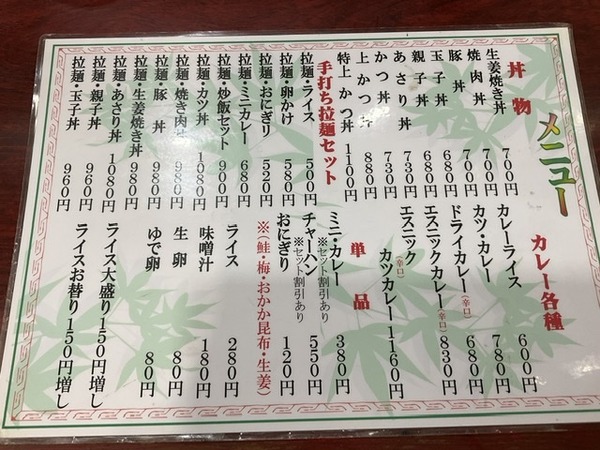 メニュー
丼物
生姜焼き丼 700円
焼肉丼 700円
豚丼 700円
玉子丼 680円
親子丼 680円
あさり丼 730円
かつ丼 730円
上かつ丼 880円
特上かつ丼 1100円
手打ち拉麺セット
拉麺・ライス 500円
拉麺・卵かけ 580円
拉麺・おにぎり 520円
拉麺・ミニカレー 680円
拉麺・炒飯セット 900円
拉麺・カツ丼 1080円
拉麺・焼き肉丼 980円
拉麺・豚丼 980円
拉麺・生姜焼き丼 980円
拉麺・あさり丼 1080円
拉麺・親子丼 960円
拉麺・玉子丼 960円
カレー各種
カレーライス 600円
カツ・カレー 780円
ドライカレー(辛口) 680円
エスニックカレー(辛口) 830円
エスニック(辛口)
カツカレー 1160円
単品
ミニ・カレー 380円
※セット割引あり
チャーハン 550円
※セット割引あり
おにぎり 120円
※(鮭・梅・おかか昆布・生姜)
ライス 280円
味噌汁 180円
生卵 80円
ゆで卵 80円
ライス大盛り150円増し
ライスお替り150円増し